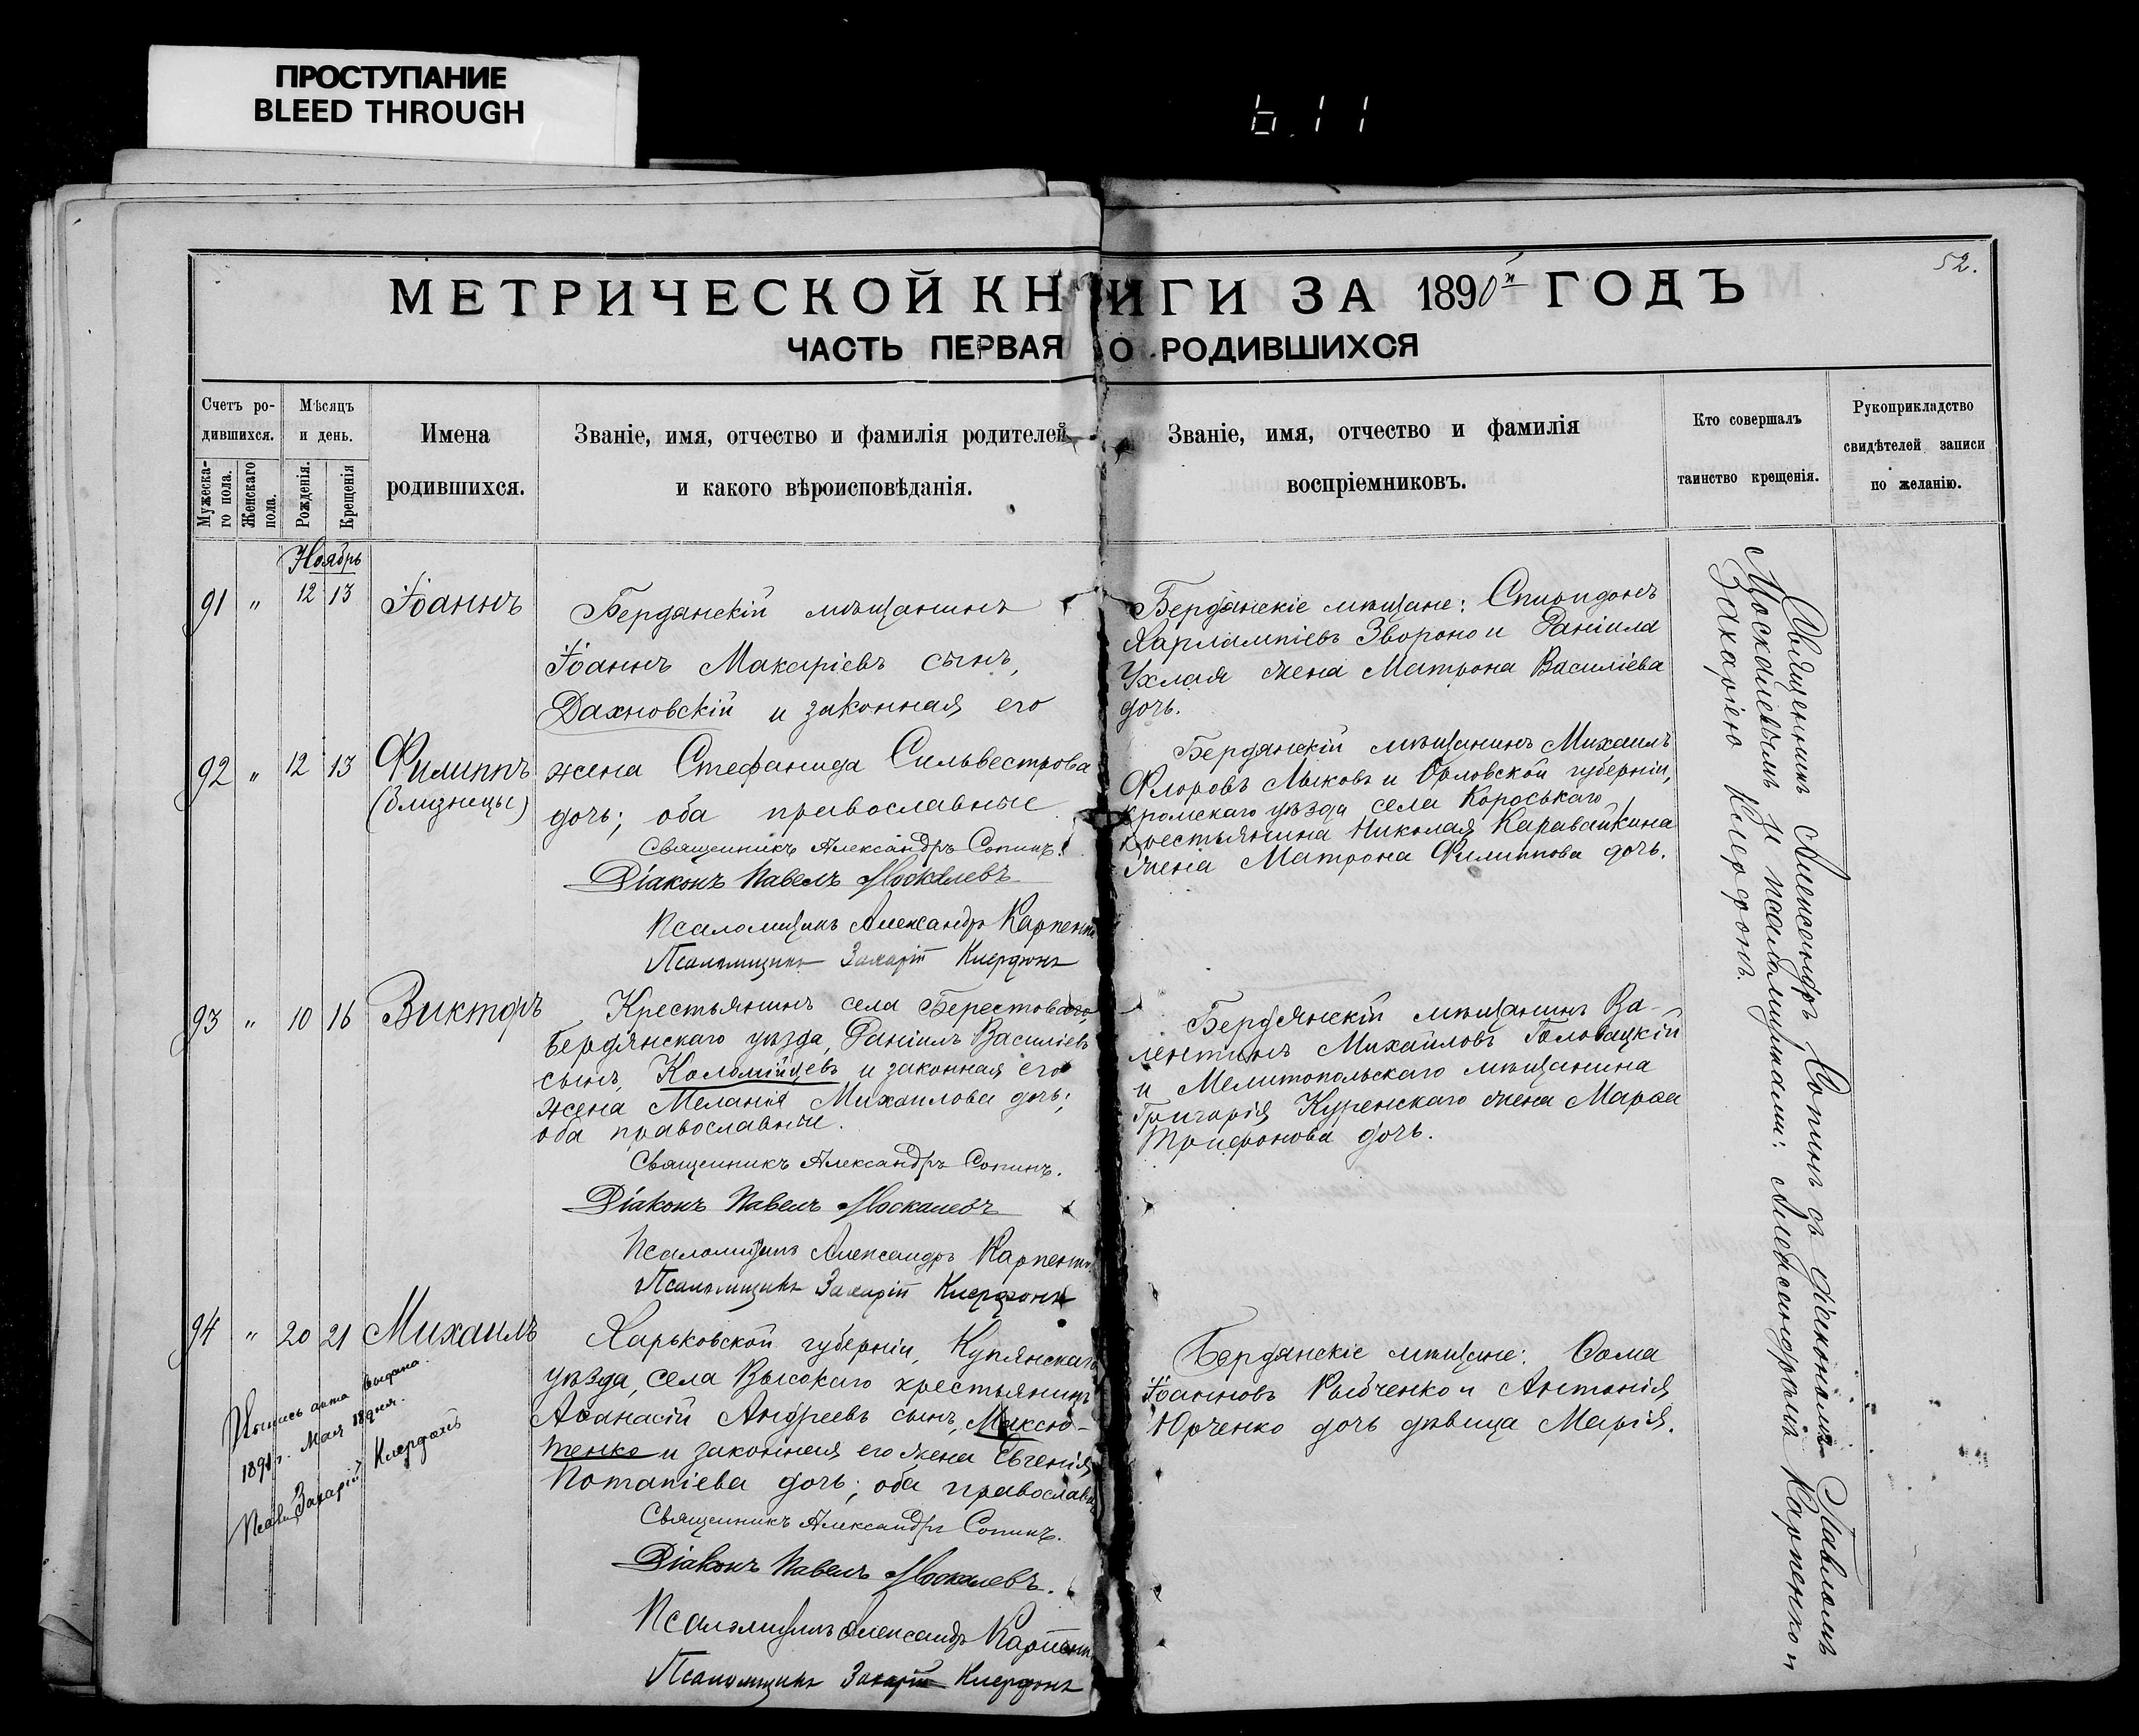 ПРОСТУПАНИЕ
BLEED THROUGH
6.11
52.
МЕТРИЧЕСКОЙ КНИГИ ЗА 1890й ГОДЪ
ЧАСТЬ ПЕРВАЯ О РОДИВШИХСЯ
Счетъ ро-
дившихся.
Мужеска-
го пола.
Женскаго
пола.
Мѣсяцъ
и день.
Рожденія.
Крещенія
Имена
родившихся.
Званіе, имя, отчество и фамилія родителей
и какого вѣроисповѣданія.
Званіе, имя, отчество и фамилія
воспріемниковъ.
Кто совершалъ
таинство крещенія.
Рукоприкладство
свидѣтелей записи
по желанію.
Ноябрь
91 " 12 13 Іоаннъ
Бердянскій мѣщанинъ
Іоаннъ Макаріевъ сынъ,
Дахновскій и законная его
92 " 12 13 Филиппъ
(близнецы)
жена Стефанида Сильвестрова
дочь; оба православные
Священникъ Александръ Сопинъ.
Діаконъ Павелъ Москалевъ
Псаломщикъ Александръ Карпенко
Псаломщикъ Захарій Клерфонъ
Бердянскіе мѣщане: Спиридонъ
Харлампіевъ Звороно и Даніила
Ухлая жена Матрона Василіева
дочь.
Бердянскій мѣщанинъ Михаилъ
Флоровъ Лыковъ и Орловской губерніи,
Кромскаго уѣзда села Короськаго
крестьянина Николая Каравайкина
жена Матрона Филиппова дочь.
93 " 10 16 Викторъ
Крестьянинъ села Берестоваго,
Бердянскаго уѣзда, Даніилъ Василіевъ
сынъ, Коломійцевъ и законная его
жена Меланія Михаилова дочь;
оба православные.
Священникъ Александръ Сопинъ.
Діаконъ Павелъ Москалевъ
Псаломщикъ Александръ Карпенко
Псаломщикъ Захарій Клерфонъ
Бердянскій мѣщанинъ Ва-
лентинъ Михаиловъ Головацкій
и Мелитопольскаго мѣщанина
Григорія Куренскаго жена Марѳа
Трифонова дочь.
94 " 20 21 Михаилъ
Выпись акта выдана
1891 г. Мая 18 дня.
Псалщ. Захарій Клерфонъ
Харьковской губерніи, Купянскаго
уѣзда, села Высокаго крестьянинъ
Аѳанасій Андреевъ сынъ, Максю-
тенко и законная его жена Евгенія
Потапіева дочь; оба православн
Священникъ Александръ Сопинъ.
Діаконъ Павелъ Москалевъ.
Псаломщикъ Александръ Карпенко
Псаломщикъ Захарій Клерфонъ
Бердянскіе мѣщане: Ѳома
Іоанновъ Рыбченко и Антонія
Юрченко дочь дѣвица Марія.
Священникъ Александръ Сопинъ съ діакономъ Павломъ
Москалевымъ и псаломщиками: Александромъ Карпенко и
Захаріею Клерфонъ.